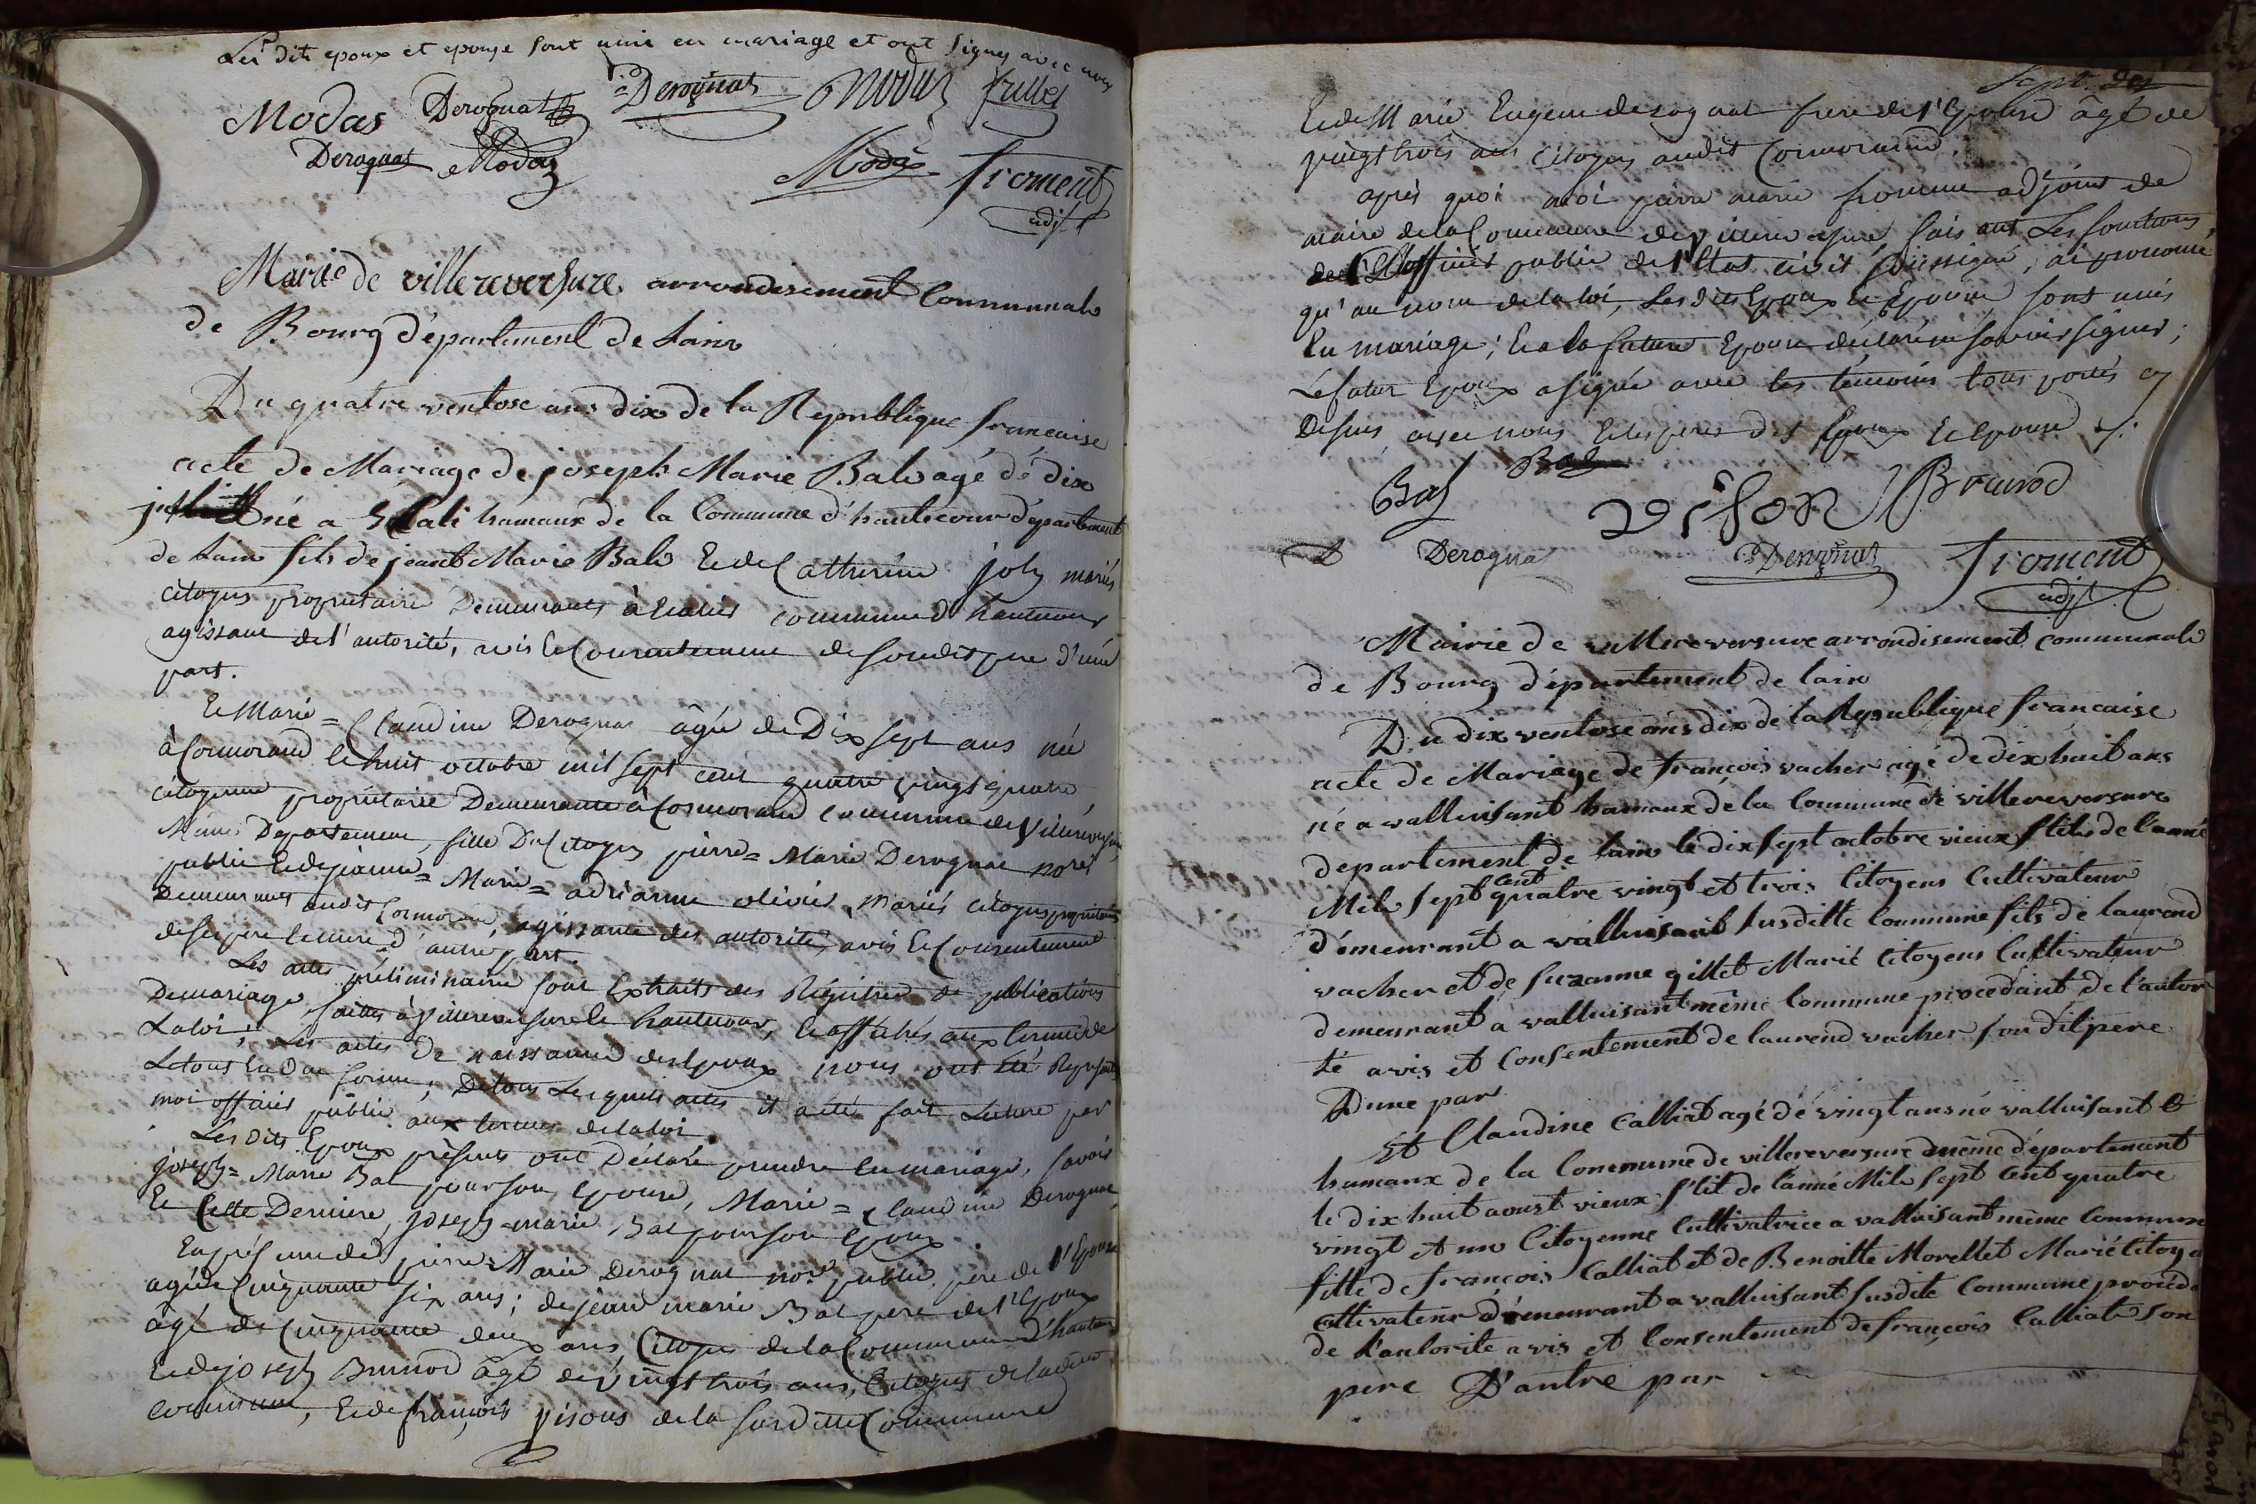 Les dits epoux et epouse sont unis en mariage et ont signés avec nous
Modas Derognat Derognat Modas
Derognat Modas Modas froment
adjt
Mairie de villereversure arrondisement Communal
de Bourg département de Lain
Du quatre ventose ans dix de la Republique francaise
acte de Mariage de joseph Marie Bal agé dé dix
né a hamaux de la Commune d'hautecour département
de Lain fils de jean Marie Bal Et de Catherine joly mariés
citoyens propriétaire Demeurants à commune d'hautecour
agissant de l'autorité, avis Et Consentement de son dit pere d'une
part.
Et Marie = Claudine Derognat âgée de Dix sept ans née
à Cormorand le huit octobre mil sept cent quatre vingt quatre
citoyenne propriétaire Demeurante à Cormorand commune de Villereversure
Même Departement, fille Du Citoyen pierre = Marie Derognat notre
public Et de jeanne = Marie = adrianne olivier mariés citoyens propriétaires
Demeurants audit Cormorand, agissante des autorité, avis Et Consentement
de ses pere et mere d'autre part.
Les actes préliminaire sont Extraits des Régistres de publications
De mariage, faittes à Villereversure Et hautecour, Et affichés aux termes de
La loi; Les actes de naissance des Epoux nous ont été
Le tout En Due forme; De tous Lesquels actes il a été fait Lecture par
moi officier public aux termes de la loi.
Les Dits Epoux présents ont Déclaré prendre En mariage, savoir
Joseph = Marie Bal pour son Epouse, Marie = Claudine Derognat,
Et Cette Derniere, joseph = marie Bal pour son Epoux.
En présence de pierre = Marie Derognat notre public, pere de l'Epouse
agé de Cinquante six ans; de jean marie Bal pere de l'Epoux
âgé de Cinquante deux ans Citoyen de la Commune d'hautecour
Et de joseph Brunod âgé de Vingt trois ans, Citoyen de ladite
commune, Et de françois pisons de la susditte Commune
Et de Marie Eugene derognat frere de l'Epouse âgé de
vingt trois ans citoyen audit Cormorand.
après quoi moi pierre marie froment adjoint de
maire de la Commune de Villereversure faisant Les fonctions
de l'officier public de l'Etat civil soussigné, ai prononcé
qu'au nom de la loi, Les dits Epoux Et Epouse sont unis
En mariage; Et a la future Epouse déclaré ne savoir signer;
Le futur Epoux a signé avec les témoins tous portés cy
Dessus avec nous Et les peres des Epoux Et epouse
Bal Bal Brunod
Derognat Derognat froment
adjt
Mairie de villereversure arrondisement communale
de Bourg département de lain
Du dix ventose ans dix de la Republique francaise
acte de Mariage de françois vacher agé de dix huit ans
né a valluisant hamaux de la Commune de villereversure
departement de lain le dix sept octobre vieux stile de l'année
Mile sept cent quatre vingt et trois Citoyens Cultivateur
démeurant a valluisant susditte Commune fils de laurend
vacher et de suzanne gillet Marié Citoyens Cultivateur
demeurant a valluisant même Commune procedant de l'autor
té avis et Consentement de laurend vacher son dit pere
D'une par
Et Claudine Calliat agé dé vingt ans né valluisant
hamaux de la Commune de villereversure même département
le dix huit aoust vieux stil de l'année Mile sept Cent quatre
vingt et un Citoyenne Cultivatrice a valluisant même Commune
fille de françois Calliat et de Benoitte Morellet Marié Citoye
Cultivateur démeurant a valluisant susdite Commune procéda
de l'autorite avis et Consentement de françois Calliat son
pere D'autre par